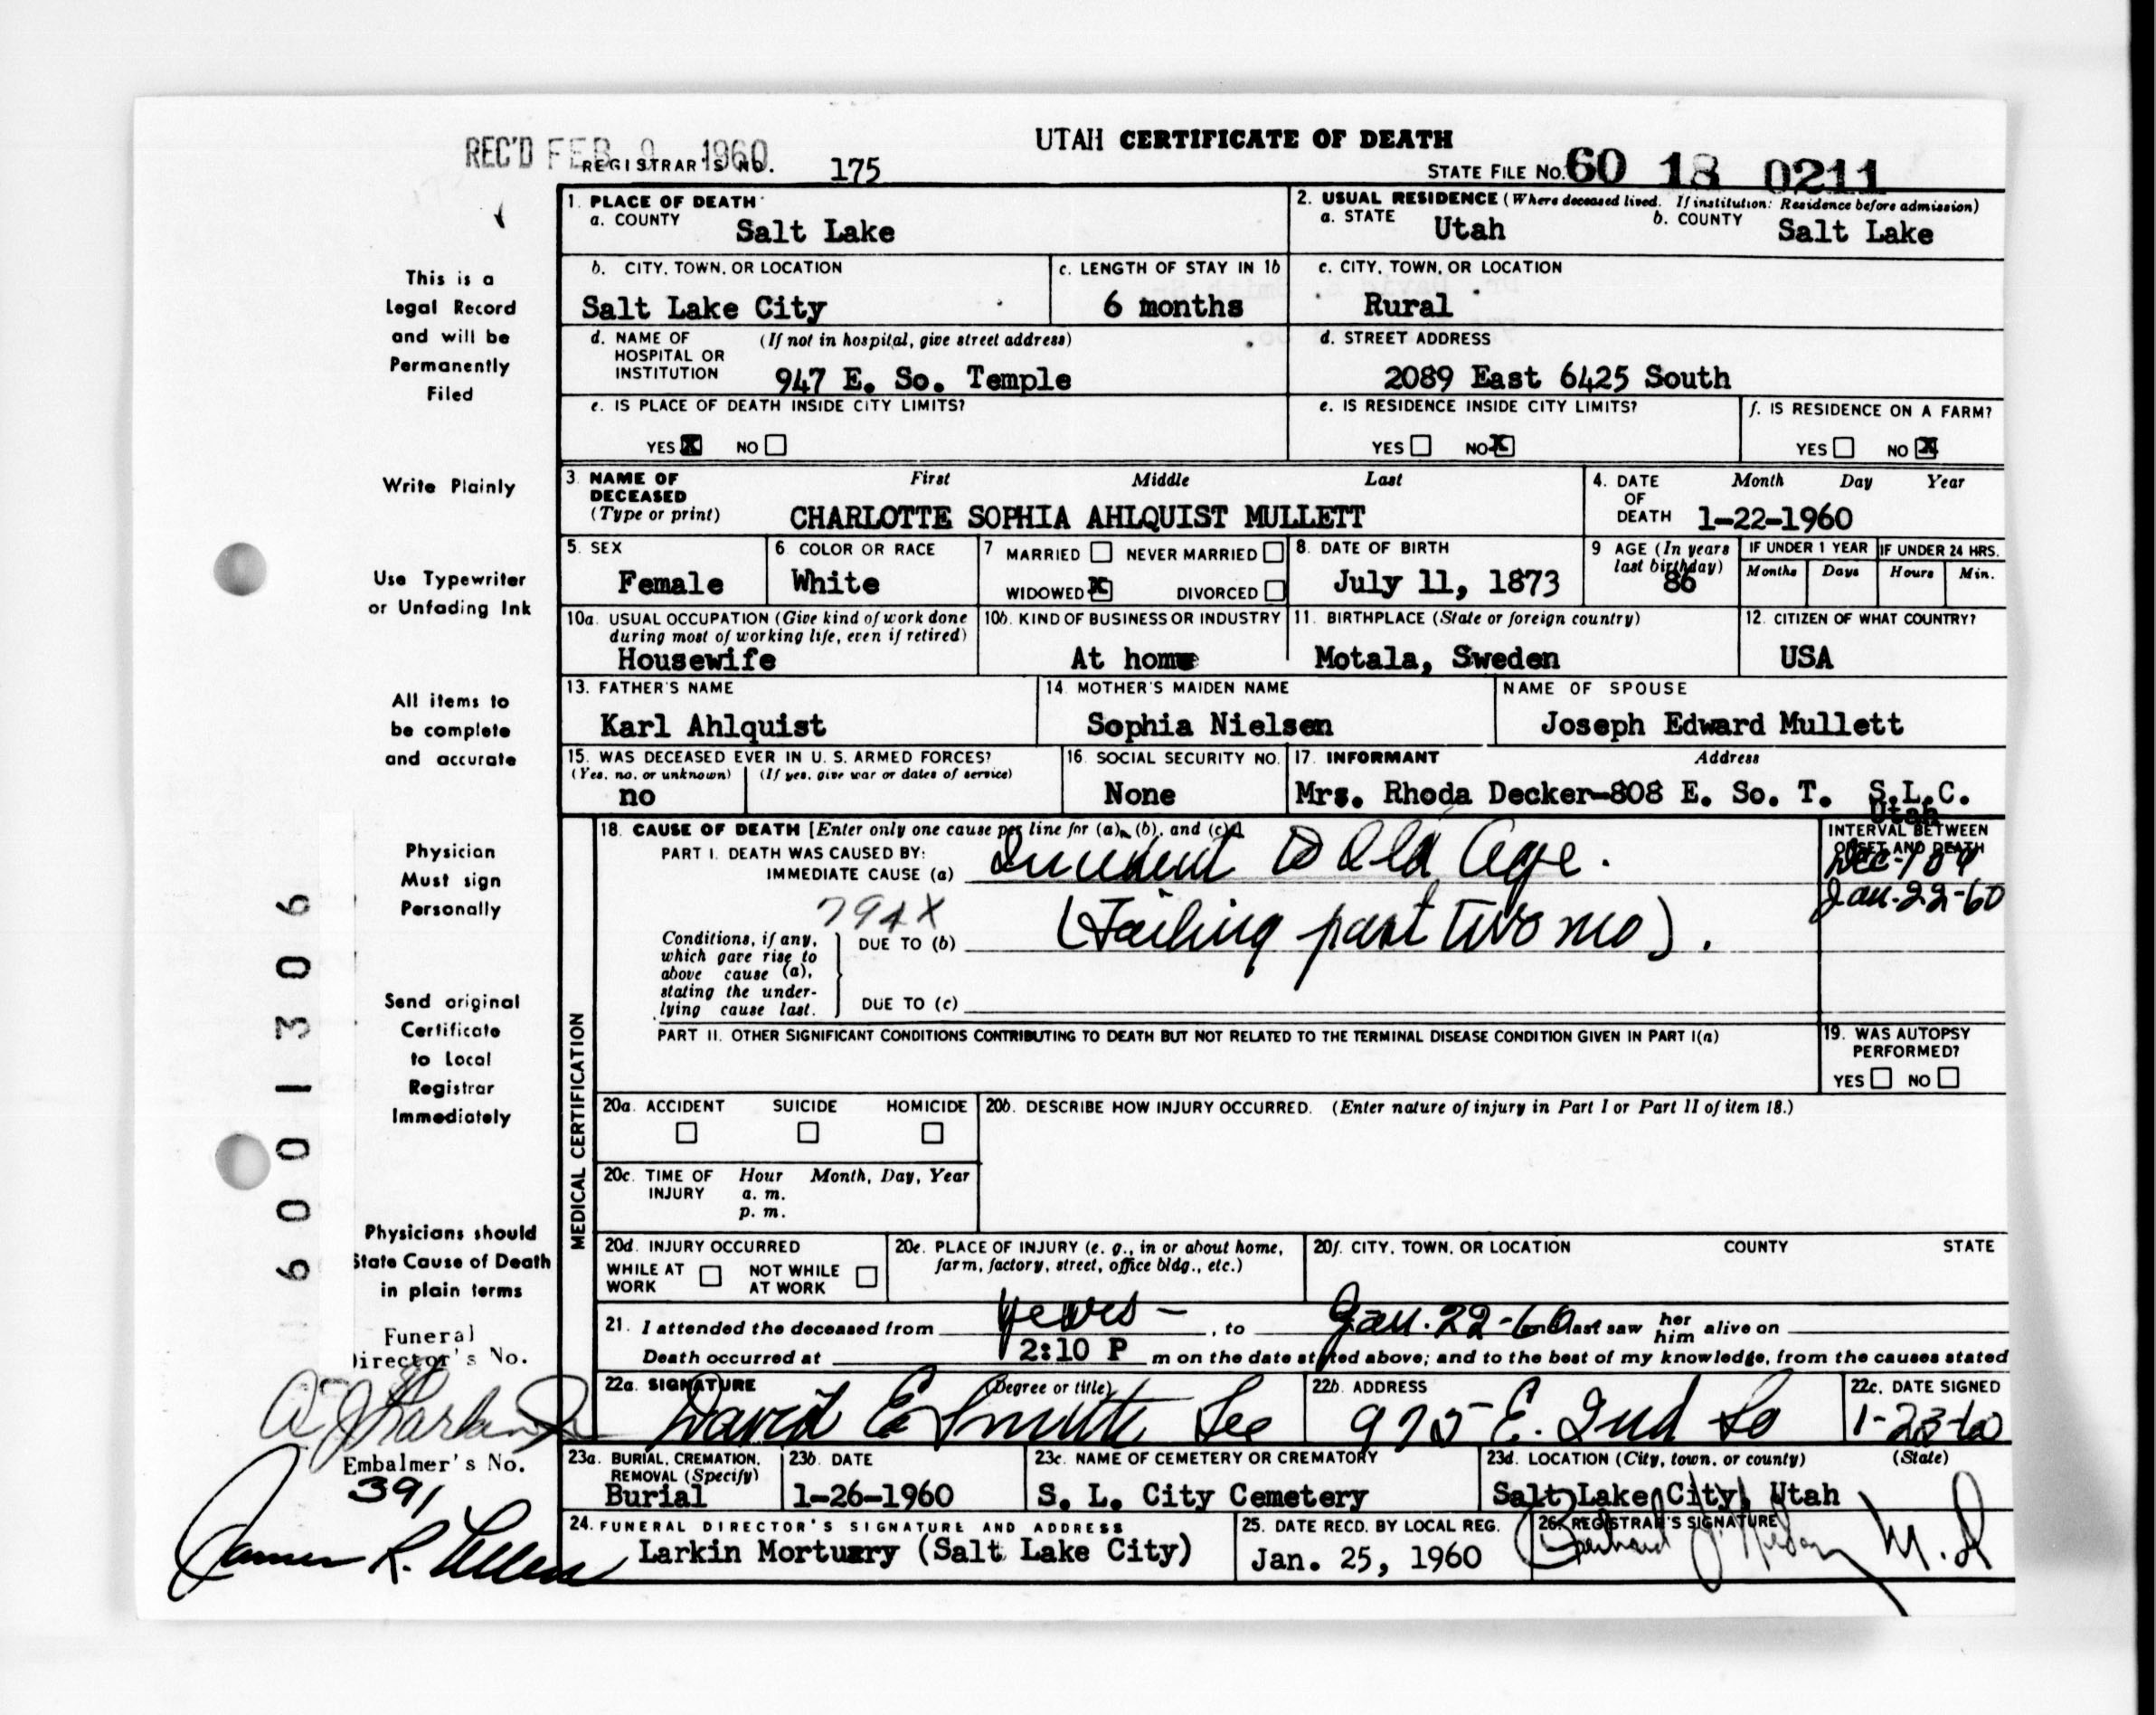 UTAH CERTIFICATE OF DEATH
REC'D FEB 1960
REGISTRAR'S NO. 175
STATE FILE NO. 60 18 0211
1. PLACE OF DEATH
a. COUNTY Salt Lake
2. USUAL RESIDENCE (Where deceased lived. If institution: Residence before admission)
a. STATE Utah b. COUNTY Salt Lake
b. CITY, TOWN, OR LOCATION Salt Lake City
c. LENGTH OF STAY IN 1b 6 months
c. CITY, TOWN, OR LOCATION Rural
d. NAME OF HOSPITAL OR INSTITUTION (If not in hospital, give street address) 947 E. So. Temple
d. STREET ADDRESS 2089 East 6425 South
e. IS PLACE OF DEATH INSIDE CITY LIMITS? YES X NO
e. IS RESIDENCE INSIDE CITY LIMITS? YES NO X
f. IS RESIDENCE ON A FARM? YES NO X
3. NAME OF DECEASED (Type or print) First Middle Last
CHARLOTTE SOPHIA AHLQUIST MULLETT
4. DATE OF DEATH Month Day Year 1-22-1960
5. SEX Female
6. COLOR OR RACE White
7. MARRIED NEVER MARRIED WIDOWED X DIVORCED
8. DATE OF BIRTH July 11, 1873
9. AGE (In years last birthday) 86
IF UNDER 1 YEAR Months Days
IF UNDER 24 HRS. Hours Min.
10a. USUAL OCCUPATION (Give kind of work done during most of working life, even if retired) Housewife
10b. KIND OF BUSINESS OR INDUSTRY At home
11. BIRTHPLACE (State or foreign country) Motala, Sweden
12. CITIZEN OF WHAT COUNTRY? USA
13. FATHER'S NAME Karl Ahlquist
14. MOTHER'S MAIDEN NAME Sophia Nielsen
NAME OF SPOUSE Joseph Edward Mullett
15. WAS DECEASED EVER IN U. S. ARMED FORCES? (Yes, no, or unknown) (If yes, give war or dates of service) no
16. SOCIAL SECURITY NO. None
17. INFORMANT Address Mrs. Rhoda Decker-808 E. So. T. S.L.C. Utah
MEDICAL CERTIFICATION
18. CAUSE OF DEATH [Enter only one cause per line for (a), (b), and (c).]
PART I. DEATH WAS CAUSED BY:
IMMEDIATE CAUSE (a) Incident to Old Age.
INTERVAL BETWEEN ONSET AND DEATH
Jan-22-60
794X
Conditions, if any, which gave rise to above cause (a), stating the underlying cause last.
DUE TO (b) (Failing past two mo).
DUE TO (c)
PART II. OTHER SIGNIFICANT CONDITIONS CONTRIBUTING TO DEATH BUT NOT RELATED TO THE TERMINAL DISEASE CONDITION GIVEN IN PART I(a)
19. WAS AUTOPSY PERFORMED? YES NO
20a. ACCIDENT SUICIDE HOMICIDE
20b. DESCRIBE HOW INJURY OCCURRED. (Enter nature of injury in Part I or Part II of item 18.)
20c. TIME OF INJURY Hour Month, Day, Year a. m. p. m.
20d. INJURY OCCURRED WHILE AT WORK NOT WHILE AT WORK
20e. PLACE OF INJURY (e. g., in or about home, farm, factory, street, office bldg., etc.)
20f. CITY, TOWN, OR LOCATION COUNTY STATE
21. I attended the deceased from years - , to Jan. 22-60 and last saw her him alive on
Death occurred at 2:10 P m on the date stated above; and to the best of my knowledge, from the causes stated
22a. SIGNATURE (Degree or title) David E Smith
22b. ADDRESS 975 E. 2nd So
22c. DATE SIGNED 1-23-60
23a. BURIAL, CREMATION, REMOVAL (Specify) Burial
23b. DATE 1-26-1960
23c. NAME OF CEMETERY OR CREMATORY S. L. City Cemetery
23d. LOCATION (City, town, or county) (State) Salt Lake City, Utah
24. FUNERAL DIRECTOR'S SIGNATURE AND ADDRESS Larkin Mortuary (Salt Lake City)
25. DATE RECD. BY LOCAL REG. Jan. 25, 1960
26. REGISTRAR'S SIGNATURE M.D
This is a
Legal Record
and will be
Permanently
Filed
Write Plainly
Use Typewriter
or Unfading Ink
All items to
be complete
and accurate
Physician
Must sign
Personally
Send original
Certificate
to Local
Registrar
Immediately
Physicians should
State Cause of Death
in plain terms
Funeral
Director's No.
Embalmer's No.
391
6001306